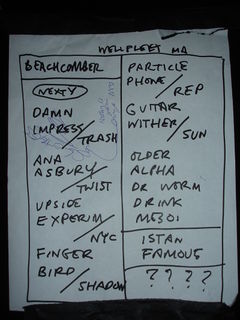 WELLFLEET MA
BEACHCOMBER
NEXTY
DAMN
IMPRESS/TRASH
ANA
ASBURY/TWIST
UPSIDE
EXPERIM/NYC
FINGER
BIRD/SHADOW
PARTICLE
PHONE/REP
GUITAR
WITHER/SUN
OLDER
ALPHA
DR WORM
DRINK
ISTAN
FAMOUS
? ? ? ?